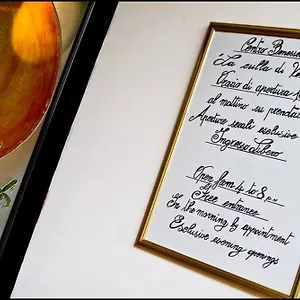 Centro Benessere
"La culla di V
Orario di apertura
al mattino su prenotaz
Aperture serali esclusive
Ingresso Libero
Open from 4 to 8 p.m
Free entrance
In the morning by appointment
Esclusive evening openings